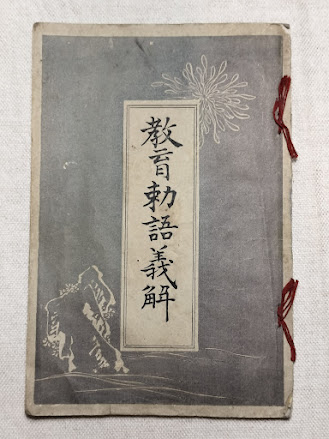 教育勅語義解